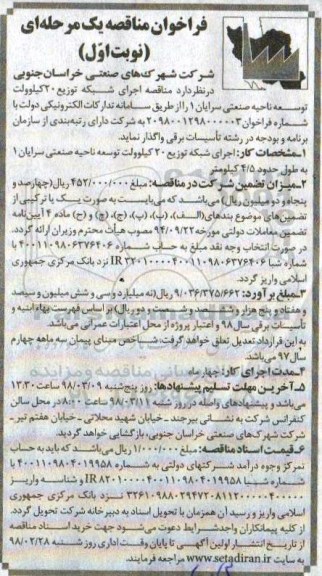 فراخوان مناقصه یک مرحله‌ای
(نوبت اول)
شرکت شهرک‌های صنعتی خراسان جنوبی
در نظر دارد مناقصه اجرای شبکه توزیع ۲۰ کیلوولت
توسعه ناحیه صنعتی سرایان ۱ را از طریق سامانه تدارکات الکترونیکی دولت با
شماره فراخوان ۲۰۹۸۰۰۱۲۹۸۰۰۰۰۰۳ به شرکت دارای رتبه‌بندی از سازمان
برنامه و بودجه در رشته تأسیسات برقی واگذار نماید.
۱ـ مشخصات کار: اجرای شبکه توزیع ۲۰ کیلوولت توسعه ناحیه صنعتی سرایان ۱
به طول حدود ۴/۵ کیلومتر
۲ـ میزان تضمین شرکت در مناقصه: مبلغ ۴۵۲/۰۰۰/۰۰۰ ریال (چهارصد و
پنجاه و دو میلیون ریال) می‌باشد که می‌بایست به صورت یک یا ترکیبی از
تضمین‌های موضوع بندهای (الف)، (ب)، (پ)، (ج)، (چ) و (ح) ماده ۴ آیین‌نامه
تضمین معاملات دولتی مورخه ۹۴/۰۹/۲۲ مصوب هیأت محترم وزیران ارائه گردد.
در صورت انتخاب وجه نقد مبلغ به حساب شماره ۴۰۰۱۱۰۹۸۰۶۳۷۶۴۰۶ با
شماره شبا IR۳۲۰۱۰۰۰۰۴۰۰۱۱۰۹۸۰۶۳۷۶۴۰۶ نزد بانک مرکزی جمهوری
اسلامی واریز گردد.
۳ـ مبلغ برآورد: ۹/۰۳۶/۳۷۵/۶۶۲ ریال (نه میلیارد و سی و شش میلیون و سیصد
و هفتاد و پنج هزار و ششصد و شصت و دو ریال) بر اساس فهرست بهاء ابنیه و
تأسیسات برقی سال ۹۸ و اعتبار پروژه از محل اعتبارات عمرانی می‌باشد.
به این قرارداد تعدیل تعلق خواهد گرفت؛ شاخص مبنای پیمان سه ماهه چهارم
سال ۹۷ می‌باشد.
۴ـ مدت اجرای کار: چهار ماه
۵ـ آخرین مهلت تسلیم پیشنهادها: روز پنج‌شنبه ۹۸/۰۳/۰۹ ساعت ۱۳:۳۰
می‌باشد و پیشنهادهای واصله در روز شنبه ۹۸/۰۳/۱۱ ساعت ۸:۰۰ در محل سالن
کنفرانس شرکت به نشانی بیرجند ـ خیابان شهید محلاتی ـ خیابان هفتم تیر ـ
شرکت شهرک‌های صنعتی خراسان جنوبی، بازگشایی خواهد گردید.
۶ـ قیمت اسناد مناقصه: مبلغ ۱/۰۰۰/۰۰۰ ریال می‌باشد که باید به حساب
تمرکز وجوه درآمد شرکتهای دولتی به شماره ۴۰۰۱۱۰۹۸۰۴۰۱۹۹۵۸ با
شماره شبا IR۸۲۰۱۰۰۰۰۴۰۰۱۱۰۹۸۰۴۰۱۹۹۵۸ و شناسه واریز
نزد بانک مرکزی جمهوری
اسلامی واریز و رسید آن همزمان با تحویل اسناد به دبیرخانه شرکت تحویل گردد.
از کلیه پیمانکاران واجد شرایط دعوت می‌شود جهت خرید اسناد مناقصه
از تاریخ انتشار اولین آگهی تا پایان وقت اداری روز شنبه ۹۸/۰۲/۲۸
به سایت www.setadiran.ir مراجعه فرمایند.